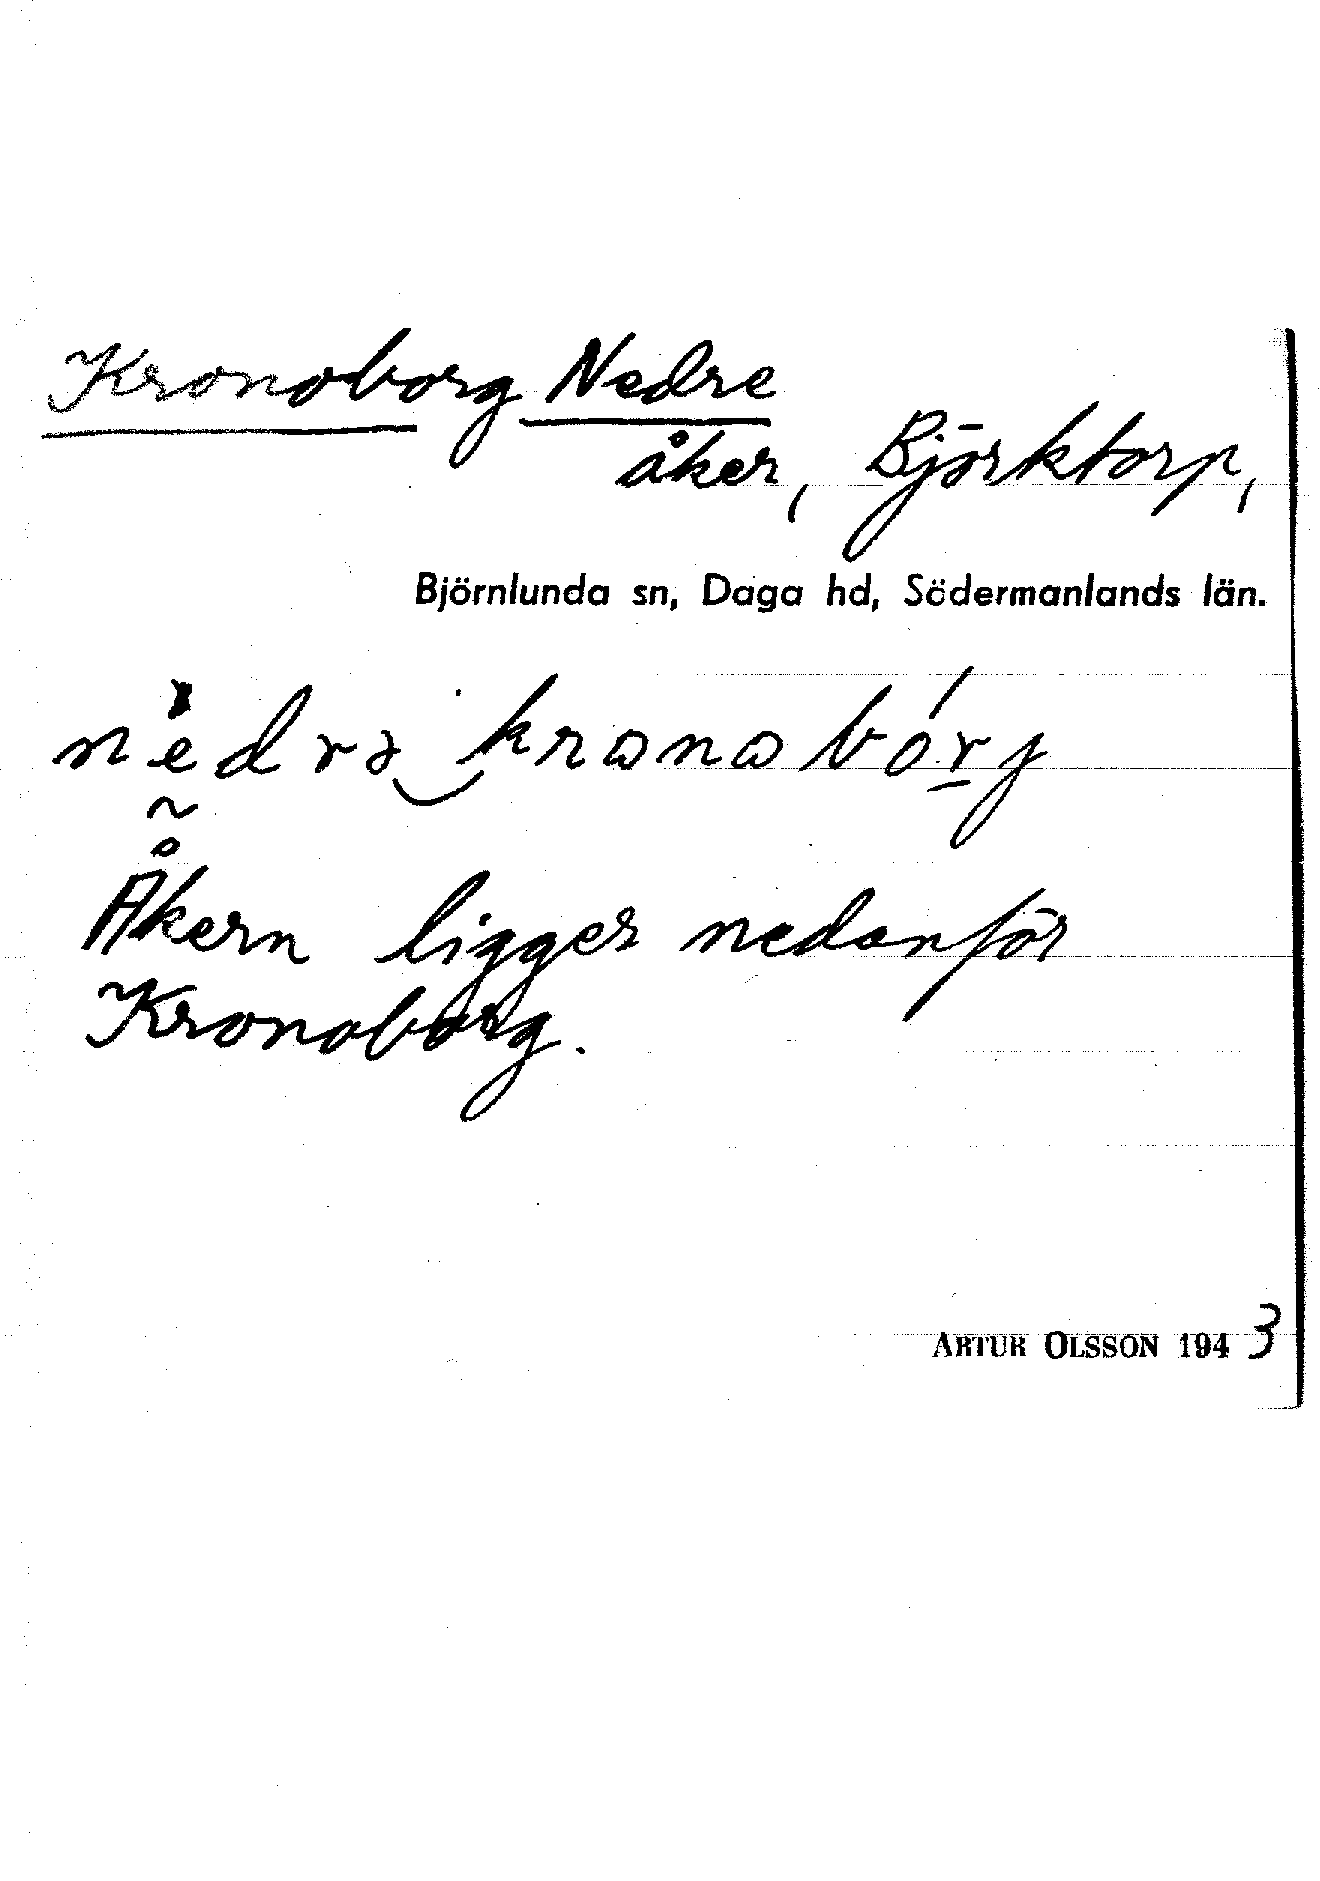 Kronoborg Nedre
åker, Björktorp,
Björnlunda sn, Daga hd, Södermanlands län.
Åkern ligger nedanför
Kronoborg.
ARTUR OLSSON 1943